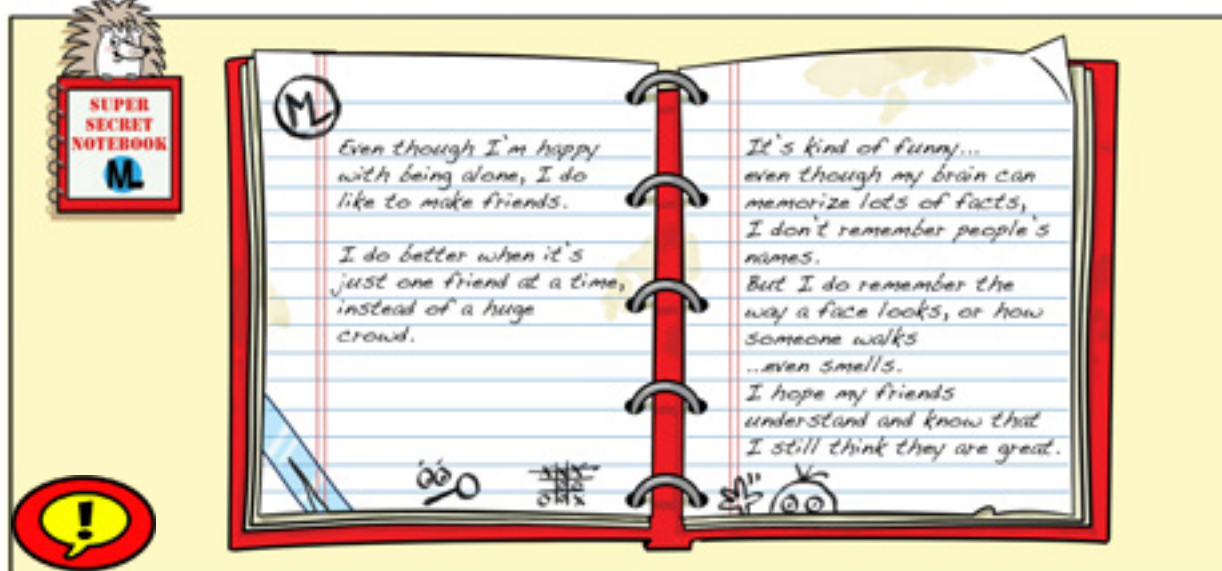 SUPER
SECRET
NOTEBOOK
ML
ML
Even though I'm happy
with being alone, I do
like to make friends.
I do better when it's
just one friend at a time,
instead of a huge
crowd.
It's kind of funny...
even though my brain can
memorize lots of facts,
I don't remember people's
names.
But I do remember the
way a face looks, or how
someone walks
...even smells.
I hope my friends
understand and know that
I still think they are great.
!